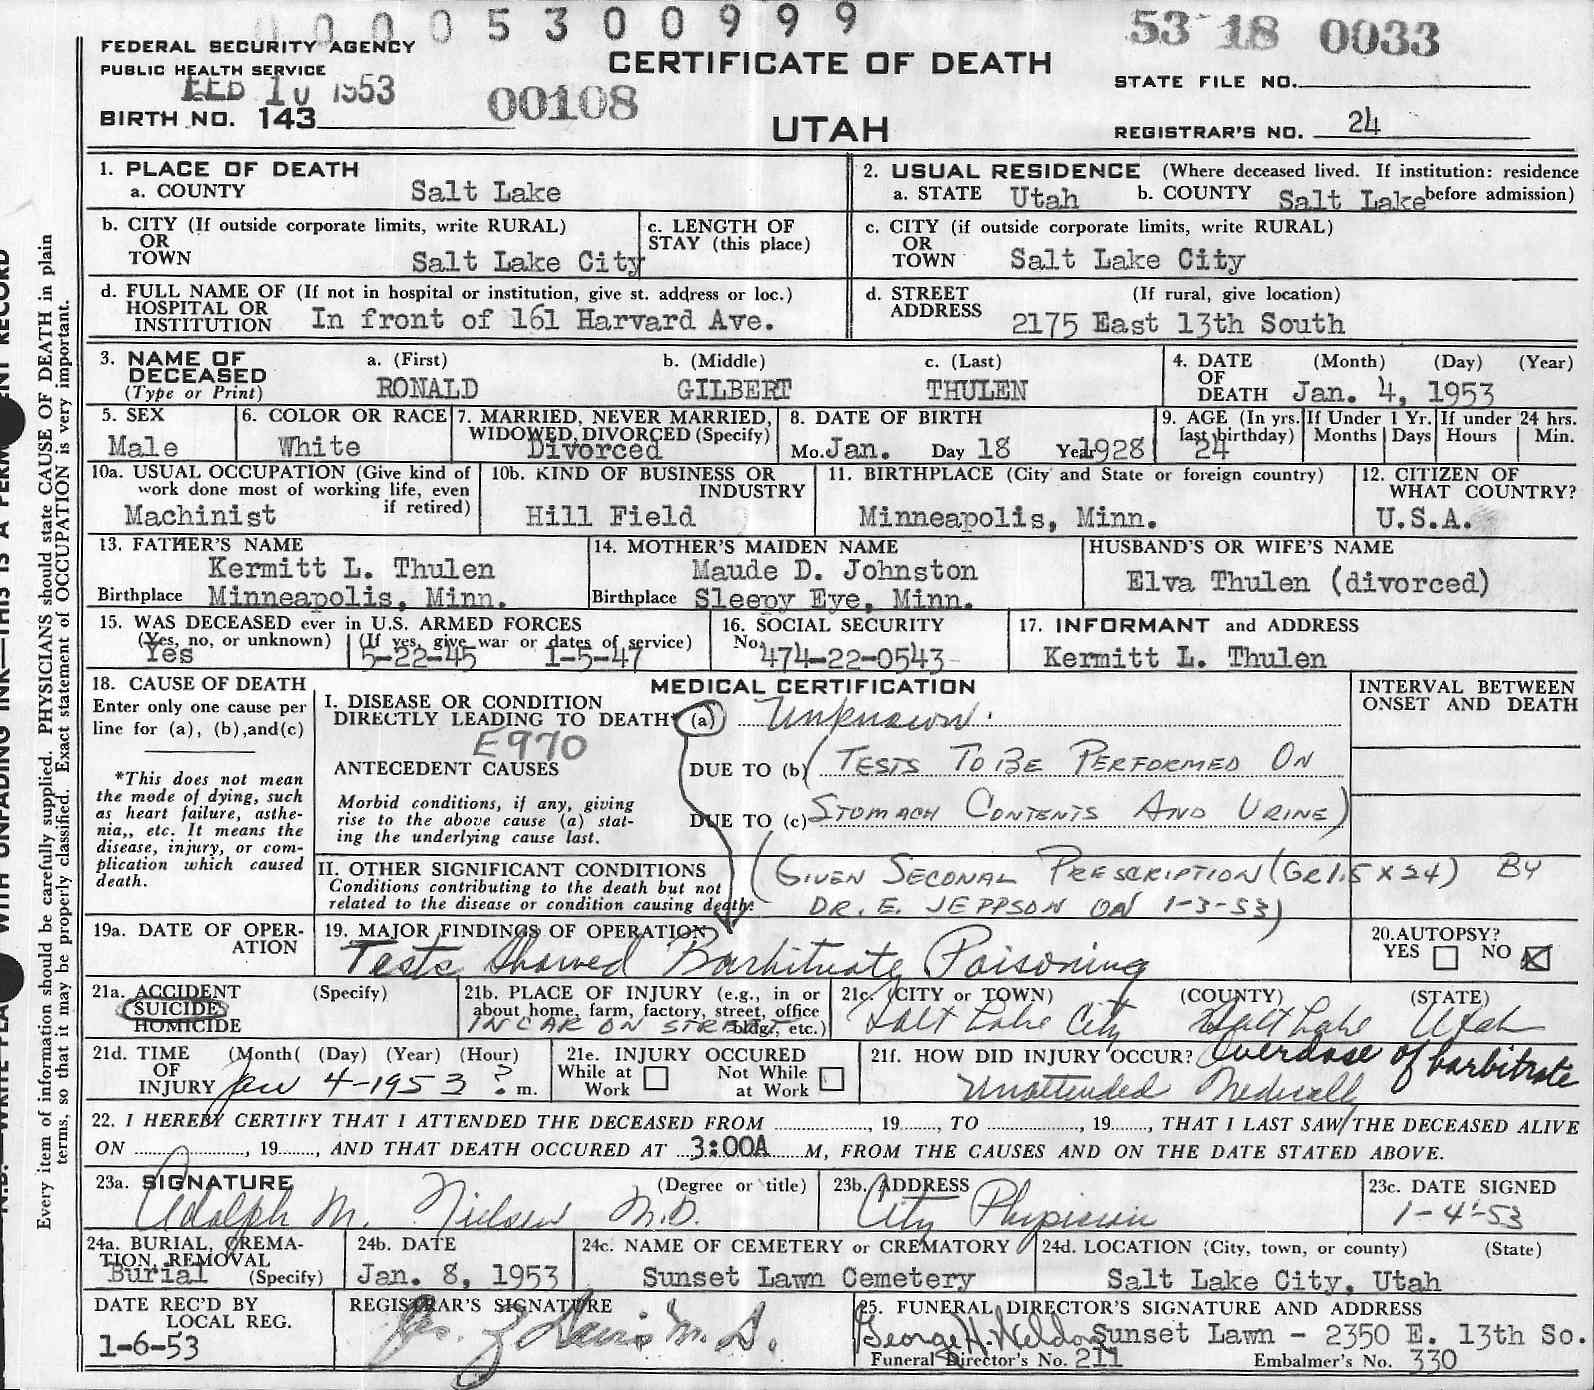 00005300999
53 18 0033
FEDERAL SECURITY AGENCY
PUBLIC HEALTH SERVICE
CERTIFICATE OF DEATH
STATE FILE NO.
FEB 10 1953
BIRTH NO. 143
00108
UTAH
REGISTRAR'S NO. 24
1. PLACE OF DEATH
a. COUNTY Salt Lake
2. USUAL RESIDENCE (Where deceased lived. If institution: residence before admission)
a. STATE Utah b. COUNTY Salt Lake
b. CITY (If outside corporate limits, write RURAL)
OR
TOWN Salt Lake City
c. LENGTH OF
STAY (this place)
c. CITY (if outside corporate limits, write RURAL)
OR
TOWN Salt Lake City
d. FULL NAME OF (If not in hospital or institution, give st. address or loc.)
HOSPITAL OR
INSTITUTION In front of 161 Harvard Ave.
d. STREET (If rural, give location)
ADDRESS 2175 East 13th South
3. NAME OF
DECEASED
(Type or Print)
a. (First) b. (Middle) c. (Last)
RONALD GILBERT THULEN
4. DATE (Month) (Day) (Year)
OF
DEATH Jan. 4, 1953
5. SEX
Male
6. COLOR OR RACE
White
7. MARRIED, NEVER MARRIED,
WIDOWED, DIVORCED (Specify)
Divorced
8. DATE OF BIRTH
Mo. Jan. Day 18 Year 1928
9. AGE (In yrs. last birthday)
24
If Under 1 Yr.
Months Days
If under 24 hrs.
Hours Min.
10a. USUAL OCCUPATION (Give kind of
work done most of working life, even
if retired)
Machinist
10b. KIND OF BUSINESS OR
INDUSTRY
Hill Field
11. BIRTHPLACE (City and State or foreign country)
Minneapolis, Minn.
12. CITIZEN OF
WHAT COUNTRY?
U.S.A.
13. FATHER'S NAME
Kermitt L. Thulen
Birthplace Minneapolis, Minn.
14. MOTHER'S MAIDEN NAME
Maude D. Johnston
Birthplace Sleepy Eye, Minn.
HUSBAND'S OR WIFE'S NAME
Elva Thulen (divorced)
15. WAS DECEASED ever in U.S. ARMED FORCES
(Yes, no, or unknown) (If yes, give war or dates of service)
Yes 5-22-45 1-5-47
16. SOCIAL SECURITY
No. 474-22-0543
17. INFORMANT and ADDRESS
Kermitt L. Thulen
18. CAUSE OF DEATH
Enter only one cause per
line for (a), (b), and (c)
*This does not mean
the mode of dying, such
as heart failure, asthe-
nia,, etc. It means the
disease, injury, or com-
plication which caused
death.
MEDICAL CERTIFICATION
INTERVAL BETWEEN
ONSET AND DEATH
I. DISEASE OR CONDITION
DIRECTLY LEADING TO DEATH* (a) Unknown.
E970
ANTECEDENT CAUSES
DUE TO (b) (TESTS TO BE PERFORMED ON
Morbid conditions, if any, giving
rise to the above cause (a) stat-
ing the underlying cause last.
DUE TO (c) STOMACH CONTENTS AND URINE)
II. OTHER SIGNIFICANT CONDITIONS
Conditions contributing to the death but not
related to the disease or condition causing death.
(GIVEN SECONAL PRESCRIPTION (GR 1.5 X 24) BY
DR. E. JEPPSON ON 1-3-53)
19a. DATE OF OPER-
ATION
19. MAJOR FINDINGS OF OPERATION
Tests Showed Barbituate Poisoning
20. AUTOPSY?
YES NO
21a. ACCIDENT (Specify)
SUICIDE
HOMICIDE
21b. PLACE OF INJURY (e.g., in or
about home, farm, factory, street, office
bldg., etc.)
IN CAR ON STREET
21c. (CITY or TOWN) (COUNTY) (STATE)
Salt Lake City Salt Lake Utah
21d. TIME (Month( (Day) (Year) (Hour)
OF
INJURY Jan 4-1953 ? m.
21e. INJURY OCCURED
While at Work
Not While at Work
21f. HOW DID INJURY OCCUR? Overdose of barbitrate
Unattended Medically
22. I HEREBY CERTIFY THAT I ATTENDED THE DECEASED FROM , 19 , TO , 19 , THAT I LAST SAW THE DECEASED ALIVE
ON , 19 , AND THAT DEATH OCCURED AT 3:00A M, FROM THE CAUSES AND ON THE DATE STATED ABOVE.
23a. SIGNATURE (Degree or title)
Adolph M. Nielsen M.D.
23b. ADDRESS
City Physician
23c. DATE SIGNED
1-4-53
24a. BURIAL, CREMA-
TION, REMOVAL
Burial (Specify)
24b. DATE
Jan. 8, 1953
24c. NAME OF CEMETERY or CREMATORY
Sunset Lawn Cemetery
24d. LOCATION (City, town, or county) (State)
Salt Lake City, Utah
DATE REC'D BY
LOCAL REG.
1-6-53
REGISTRAR'S SIGNATURE
25. FUNERAL DIRECTOR'S SIGNATURE AND ADDRESS
George H. Weldon Sunset Lawn - 2350 E. 13th So.
Funeral Director's No. 211 Embalmer's No. 330
Every item of information should be carefully supplied. PHYSICIANS should state CAUSE OF DEATH in plain
terms, so that it may be properly classified. Exact statement of OCCUPATION is very important.